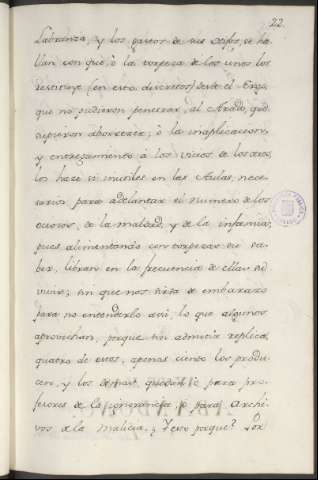 22.
Labranza, y los gastos de sus oficios, se ha-
llan con que, ò la torpeza de los unos los
restituye (en esto discretos) desde el Ergo,
que no pudieron penetrar, al Arado, que
supieron aborrecer; ò la inaplicacion,
y entregamiento à los vicios de los otros,
los hace si inutiles en las Aulas, nece-
sarios para adelantar el numero de los
ociosos, de la maldad, y de la infamia,
pues alimentando con torpezas su sa-
ber, libran en la frecuencia de ellas su
vivir; sin que nos sirva de embarazo
para no entenderlo asi, lo que algunos
aprovechan, porque sin admitir replica,
quatro de estos, apenas ciento los produ-
cen, y los demas quedan ò para pro-
fesores de la ignorancia, ò para Archi-
vos de la malicia. ¿Y esto porque? Por